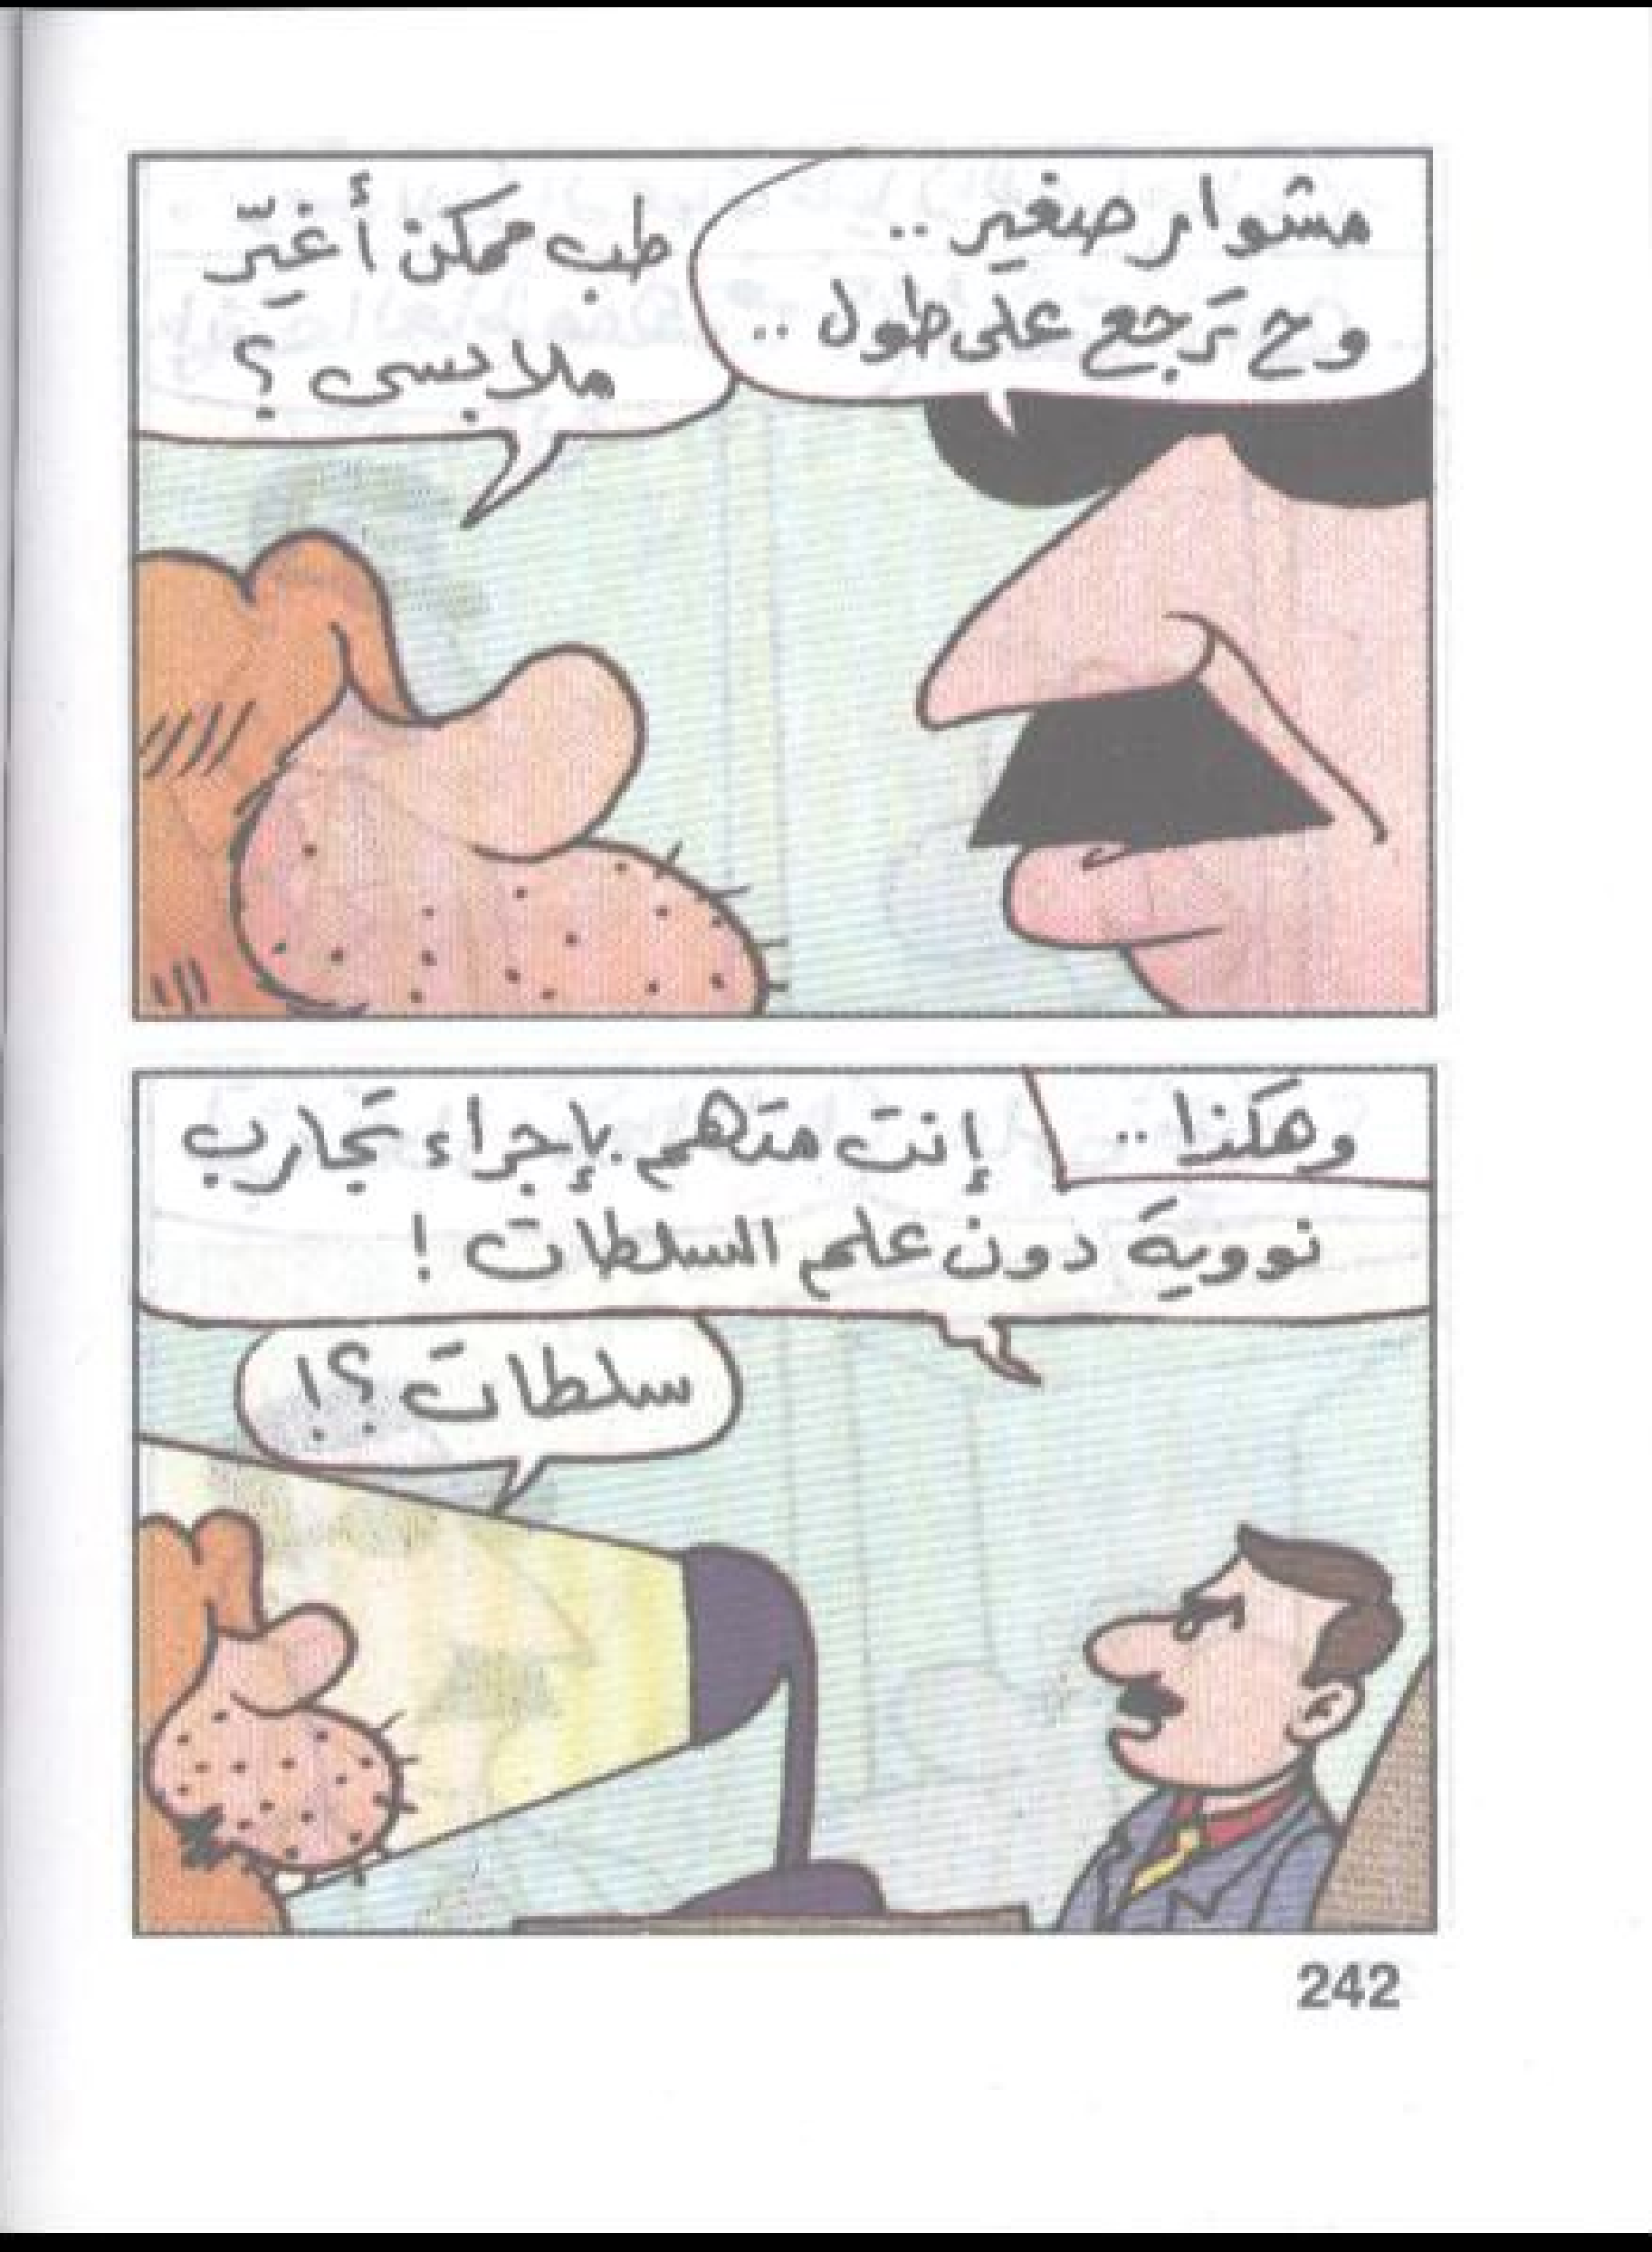 مشوار صغير ..
وح ترَجع على طول ..
طب ممكن أغيّر
ملابسى ؟
وهكذا ..
إنت متهم بإجراء تجارب
نووية دون علم السلطات !
سلطات ؟!
242